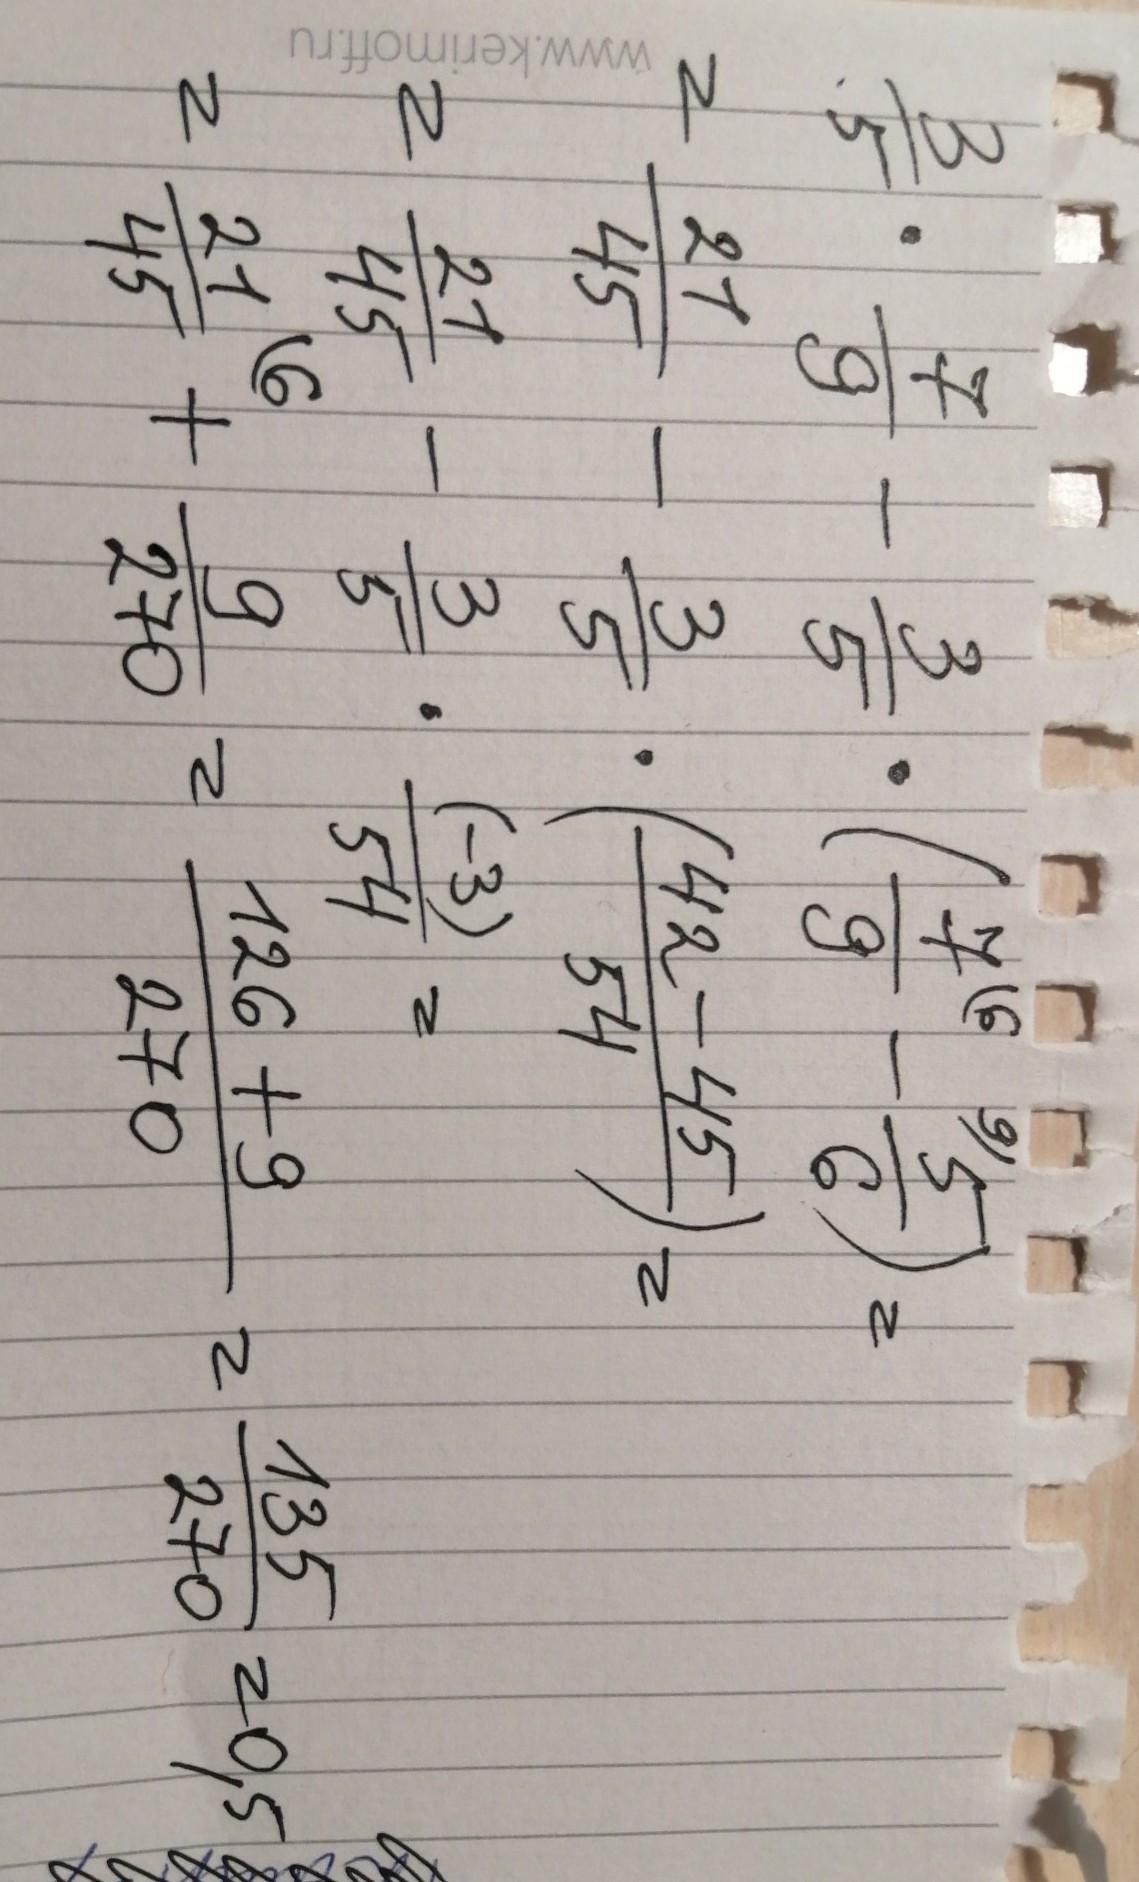 www.kerimoff.ru
3/5 · 7/9 - 3/5 · (7/9 (6 - 9/ 5/6) =
= 21/45 - 3/5 · (42-45/54) =
= 21/45 - 3/5 · (-3)/54 =
= 21/45 (6 + 9/270 = 126+9/270 = 135/270 = 0,5